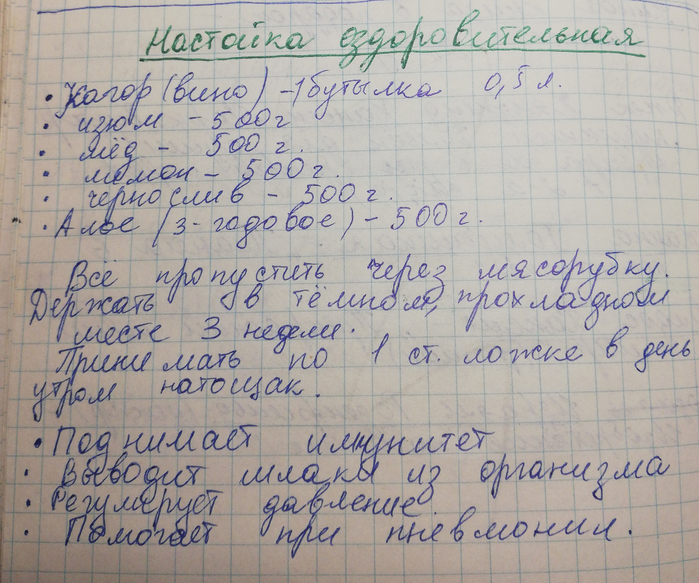 Настойка оздоровительная
• Кагор (вино) – 1 бутылка 0,5 л.
• изюм – 500г
• мёд – 500 г.
• лимон – 500 г.
• чернослив – 500 г.
• Алое (3-годовое) – 500 г.
Всё пропустить через мясорубку.
Держать в тёмном, прохладном
месте 3 недели.
Принимать по 1 ст. ложке в день
утром натощак.
• Поднимает имунитет
• Выводит шлаки из организма
• Регулирует давление.
• Помогает при пневмонии.